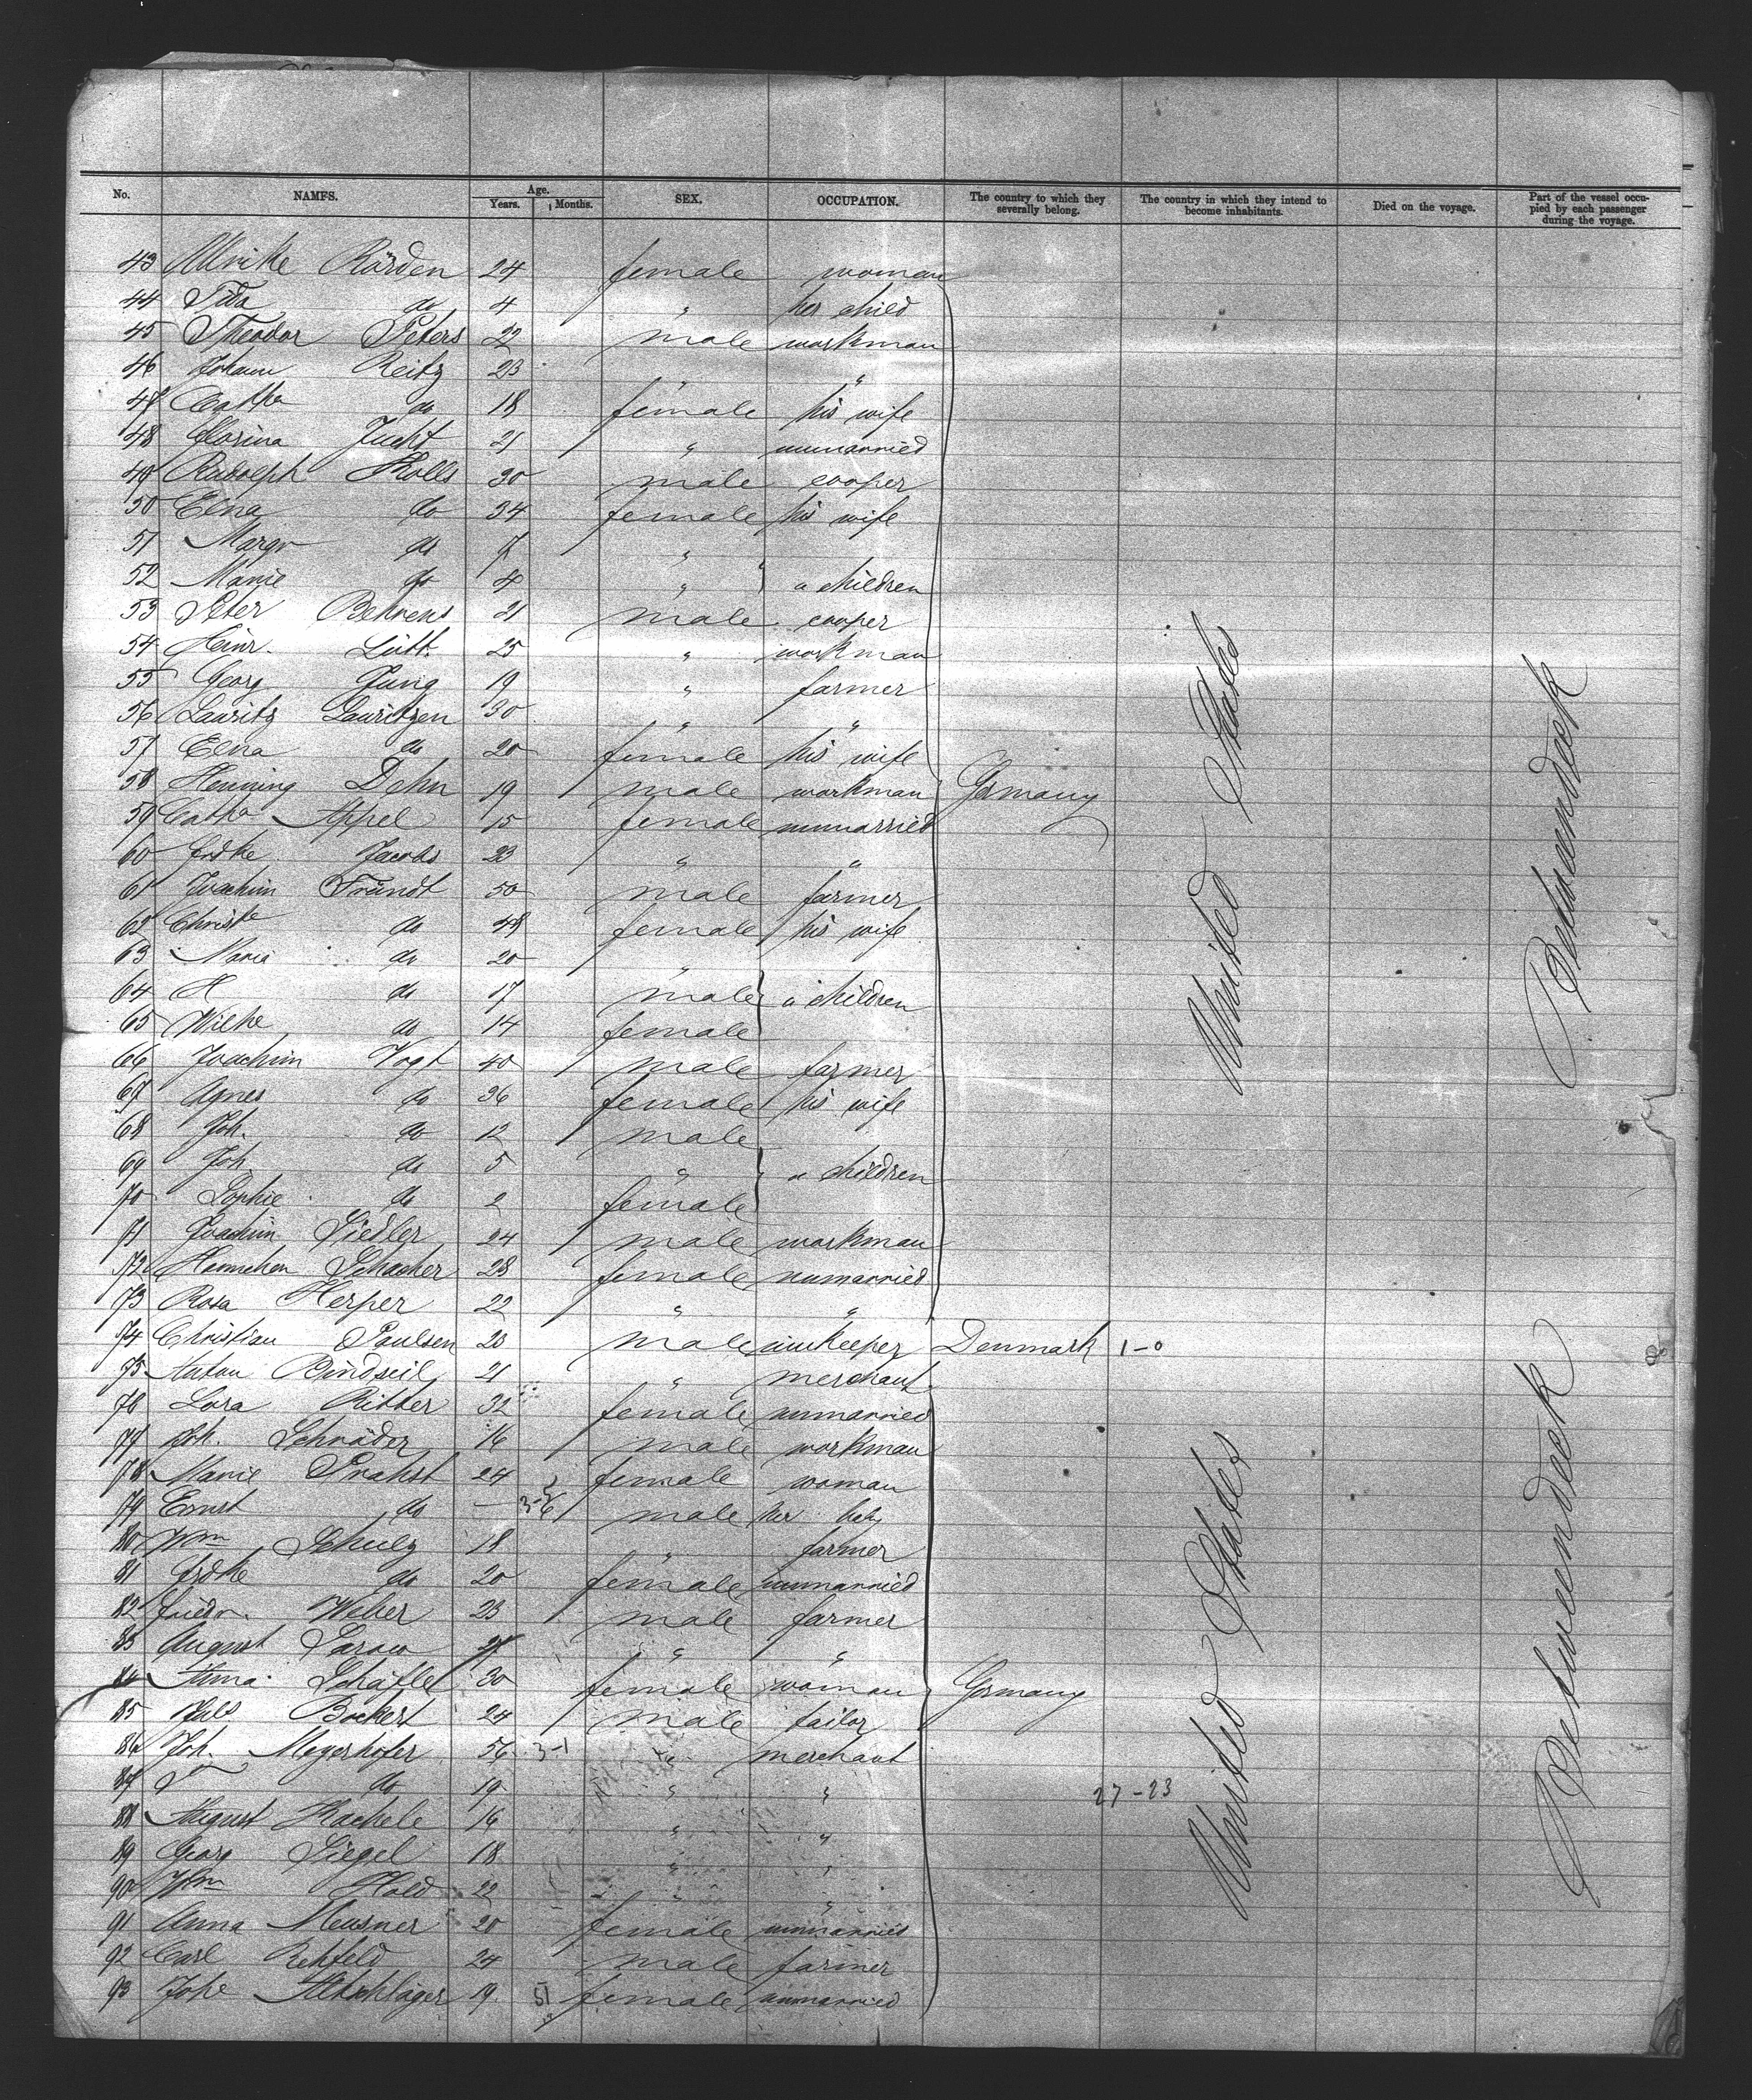 No. NAMES. Age. Years. Months. SEX. OCCUPATION. The country to which they severally belong. The country in which they intend to become inhabitants. Died on the voyage. Part of the vessel occupied by each passenger during the voyage.
43 Ulrike Rörden 24 female woman
44 Tida do 4 " her child
45 Theodor Peters 22 male workman
46 Johann Reitz 23 " "
47 Cathe do 18 female his wife
48 Jucht 21 " unmarried
49 Rudolph Kolls 30 male cooper
50 Elna do 34 female his wife
51 Margr do 7 "
52 Marie do 4 " " children
53 Peter Behrens 21 male cooper
54 Heinr. Lütt 25 " workman
55 Georg Jung 19 " farmer
56 Lauritz Lauritzen 30 " "
57 Elna do 20 female his wife
58 Henning Dehn 19 male workman Germany
59 Cathe Appel 15 female unmarried
60 Frdke Jacobs 23 " "
61 Joachim Fründt 50 male farmer
62 Christe do 49 female his wife
63 Maria do 20 "
64 H do 17 male " children
65 Wilhe do 14 female
66 Joachim Vogt 40 male farmer
67 Agnes do 36 female his wife
68 Joh. do 12 male
69 Joh. do 5 " " children
70 Sophie do 2 female
71 Joachim Siedler 24 male workman
72 Hannchen Schacher 28 female unmarried
73 Rosa Herper 22 " "
United States
Betweendeck
74 Christian Paulsen 23 male innkeeper Denmark 1-0
75 Anton Bindseil 21 " merchant
76 Lora Ritter 32 female unmarried
77 Joh. Schröder 16 male workman
78 Marie Prahst 24 female woman
79 Ernst do — male her baby
80 Wm Schulz 18 " farmer
81 Frdke do 20 female unmarried
82 Friedr. Weber 23 male farmer
83 August Sarow 27 " "
84 Anna Schäfle 30 female woman Germany
85 Bockert 24 male tailor
86 Joh. Mayerhofer 56 3-1 " merchant
87 do 19 " " 27-23
88 August Hachele 16 " "
89 Georg Siegel 18 " "
90 Wm Hold 22 " "
91 Anna Meusner 20 female unmarried
92 Carl Rehfeld 24 male farmer
93 Johe Altschläger 19 51 female unmarried
United States
Betweendeck